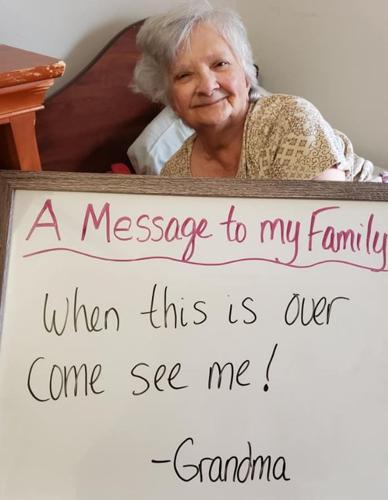 A Message to my Family
When this is over
Come see me!
-Grandma